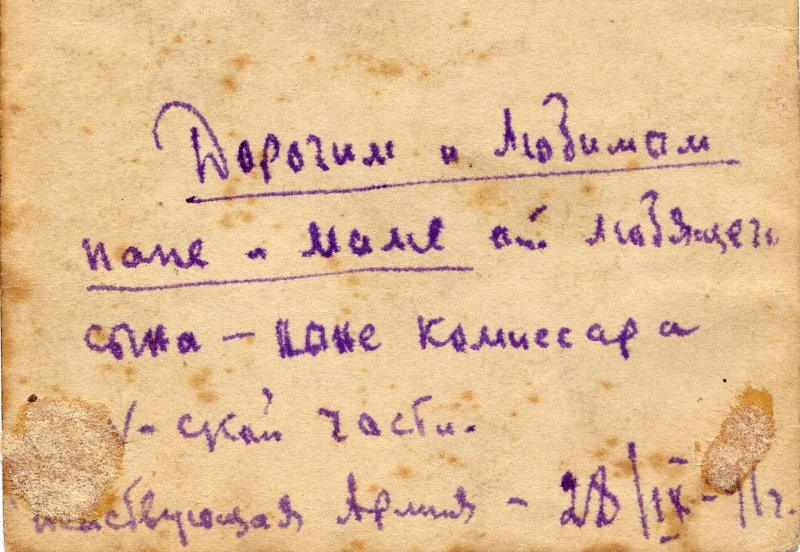 Дорогим и любимым
папе и маме от любящего
сына – комиссара
-ской части.
Действующая Армия – 28/IX-